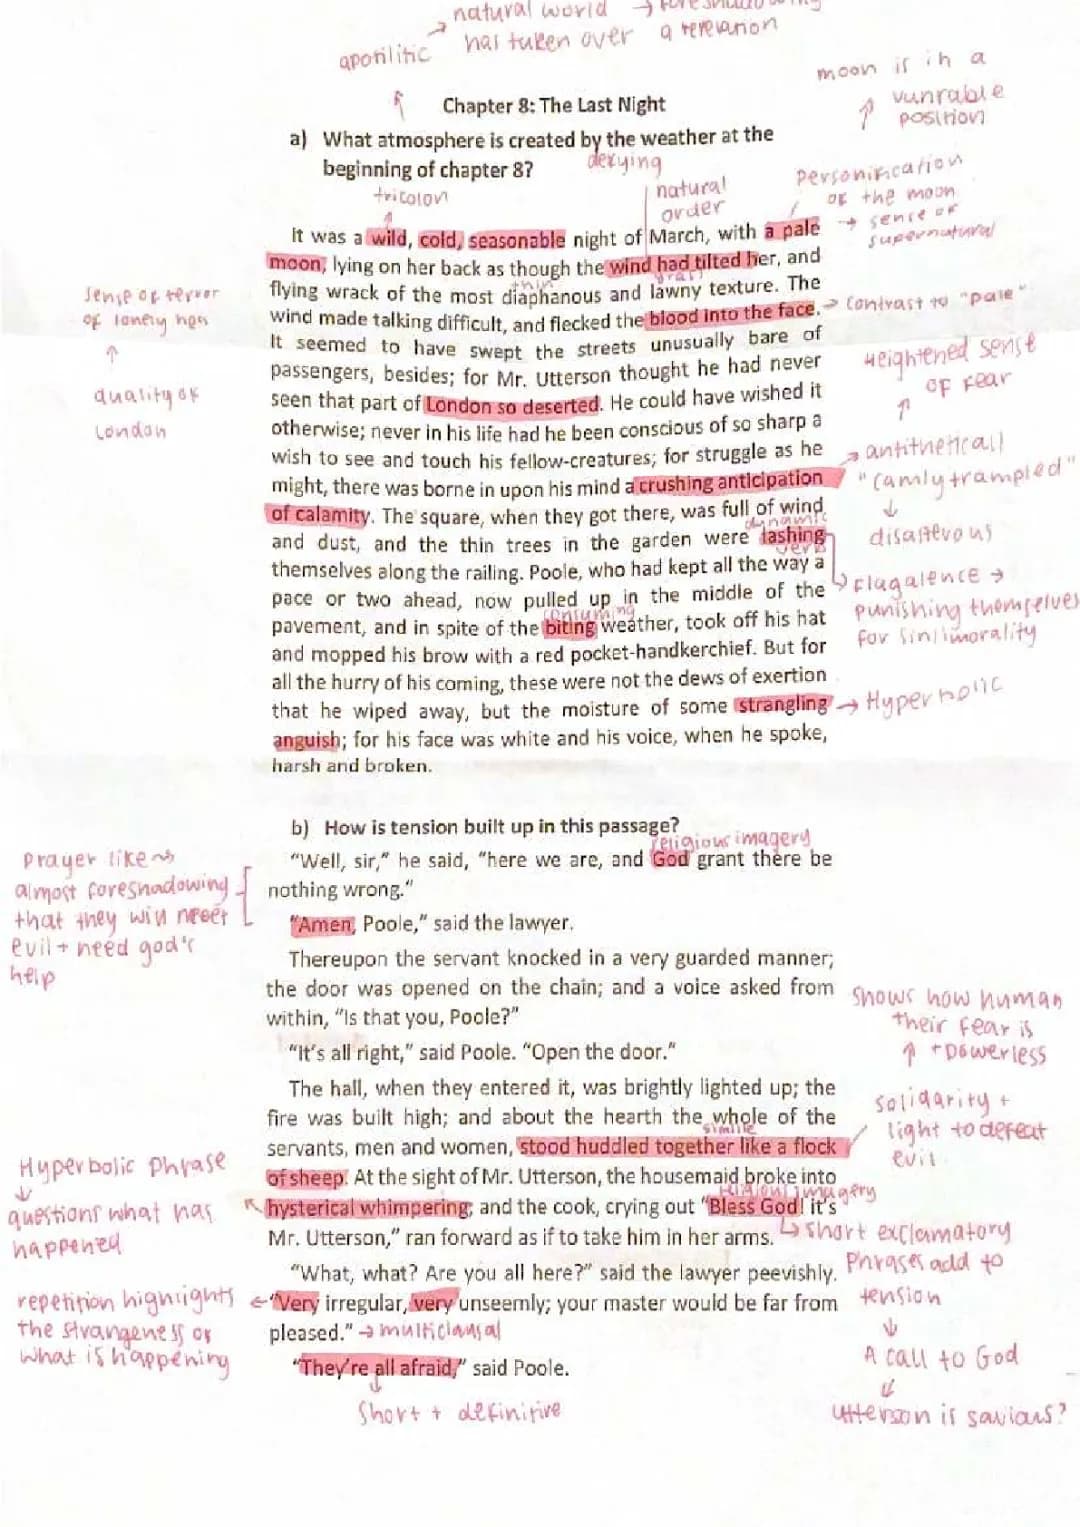 natural world → foreshadowing
has taken over a revelation
apotilitic
moon is in a
vunrable
position
Chapter 8: The Last Night
a) What atmosphere is created by the weather at the
beginning of chapter 8?
defying
tricolon
natural
order
personification
of the moon
→ sense of
supernatural
It was a wild, cold, seasonable night of March, with a pale
moon, lying on her back as though the wind had tilted her, and
thin
flying wrack of the most diaphanous and lawny texture. The
wind made talking difficult, and flecked the blood into the face. → contrast to "pale"
It seemed to have swept the streets unusually bare of
passengers, besides; for Mr. Utterson thought he had never
seen that part of London so deserted. He could have wished it
otherwise; never in his life had he been conscious of so sharp a
wish to see and touch his fellow-creatures; for struggle as he
might, there was borne in upon his mind a crushing anticipation
of calamity. The square, when they got there, was full of wind
dynamic
and dust, and the thin trees in the garden were lashing
verb
themselves along the railing. Poole, who had kept all the way a
pace or two ahead, now pulled up in the middle of the
consuming
pavement, and in spite of the biting weather, took off his hat
and mopped his brow with a red pocket-handkerchief. But for
all the hurry of his coming, these were not the dews of exertion
that he wiped away, but the moisture of some strangling → Hyperbolic
anguish; for his face was white and his voice, when he spoke,
harsh and broken.
sense of terror
of lonely
↑
quality of
London
Heightened sense
of fear
↑
antithetical
"camly trampled"
↓
disasterous
flagalence →
punishing themselves
for sin/imorality
b) How is tension built up in this passage?
religious imagery
"Well, sir," he said, "here we are, and God grant there be
nothing wrong."
"Amen, Poole," said the lawyer.
prayer like →
almost foreshadowing
that they will meet
evil + need god's
help
Thereupon the servant knocked in a very guarded manner;
the door was opened on the chain; and a voice asked from
within, "Is that you, Poole?"
"It's all right," said Poole. "Open the door."
The hall, when they entered it, was brightly lighted up; the
fire was built high; and about the hearth the whole of the
simile
servants, men and women, stood huddled together like a flock
of sheep. At the sight of Mr. Utterson, the housemaid broke into
religious imagery
hysterical whimpering; and the cook, crying out "Bless God! it's
Mr. Utterson," ran forward as if to take him in her arms.
"What, what? Are you all here?" said the lawyer peevishly.
"Very irregular, very unseemly; your master would be far from
pleased." → multiclausal
"They're all afraid," said Poole.
↓
short + definitive
Shows how human
their fear is
↑ + powerless
solidarity +
light to defeat
evil
short exclamatory
Phrases add to
tension
↓
A call to God
↓
Utterson is saviour?
Hyperbolic Phrase
↓
questions what has
happened
repetition highlights
the strangeness of
what is happening